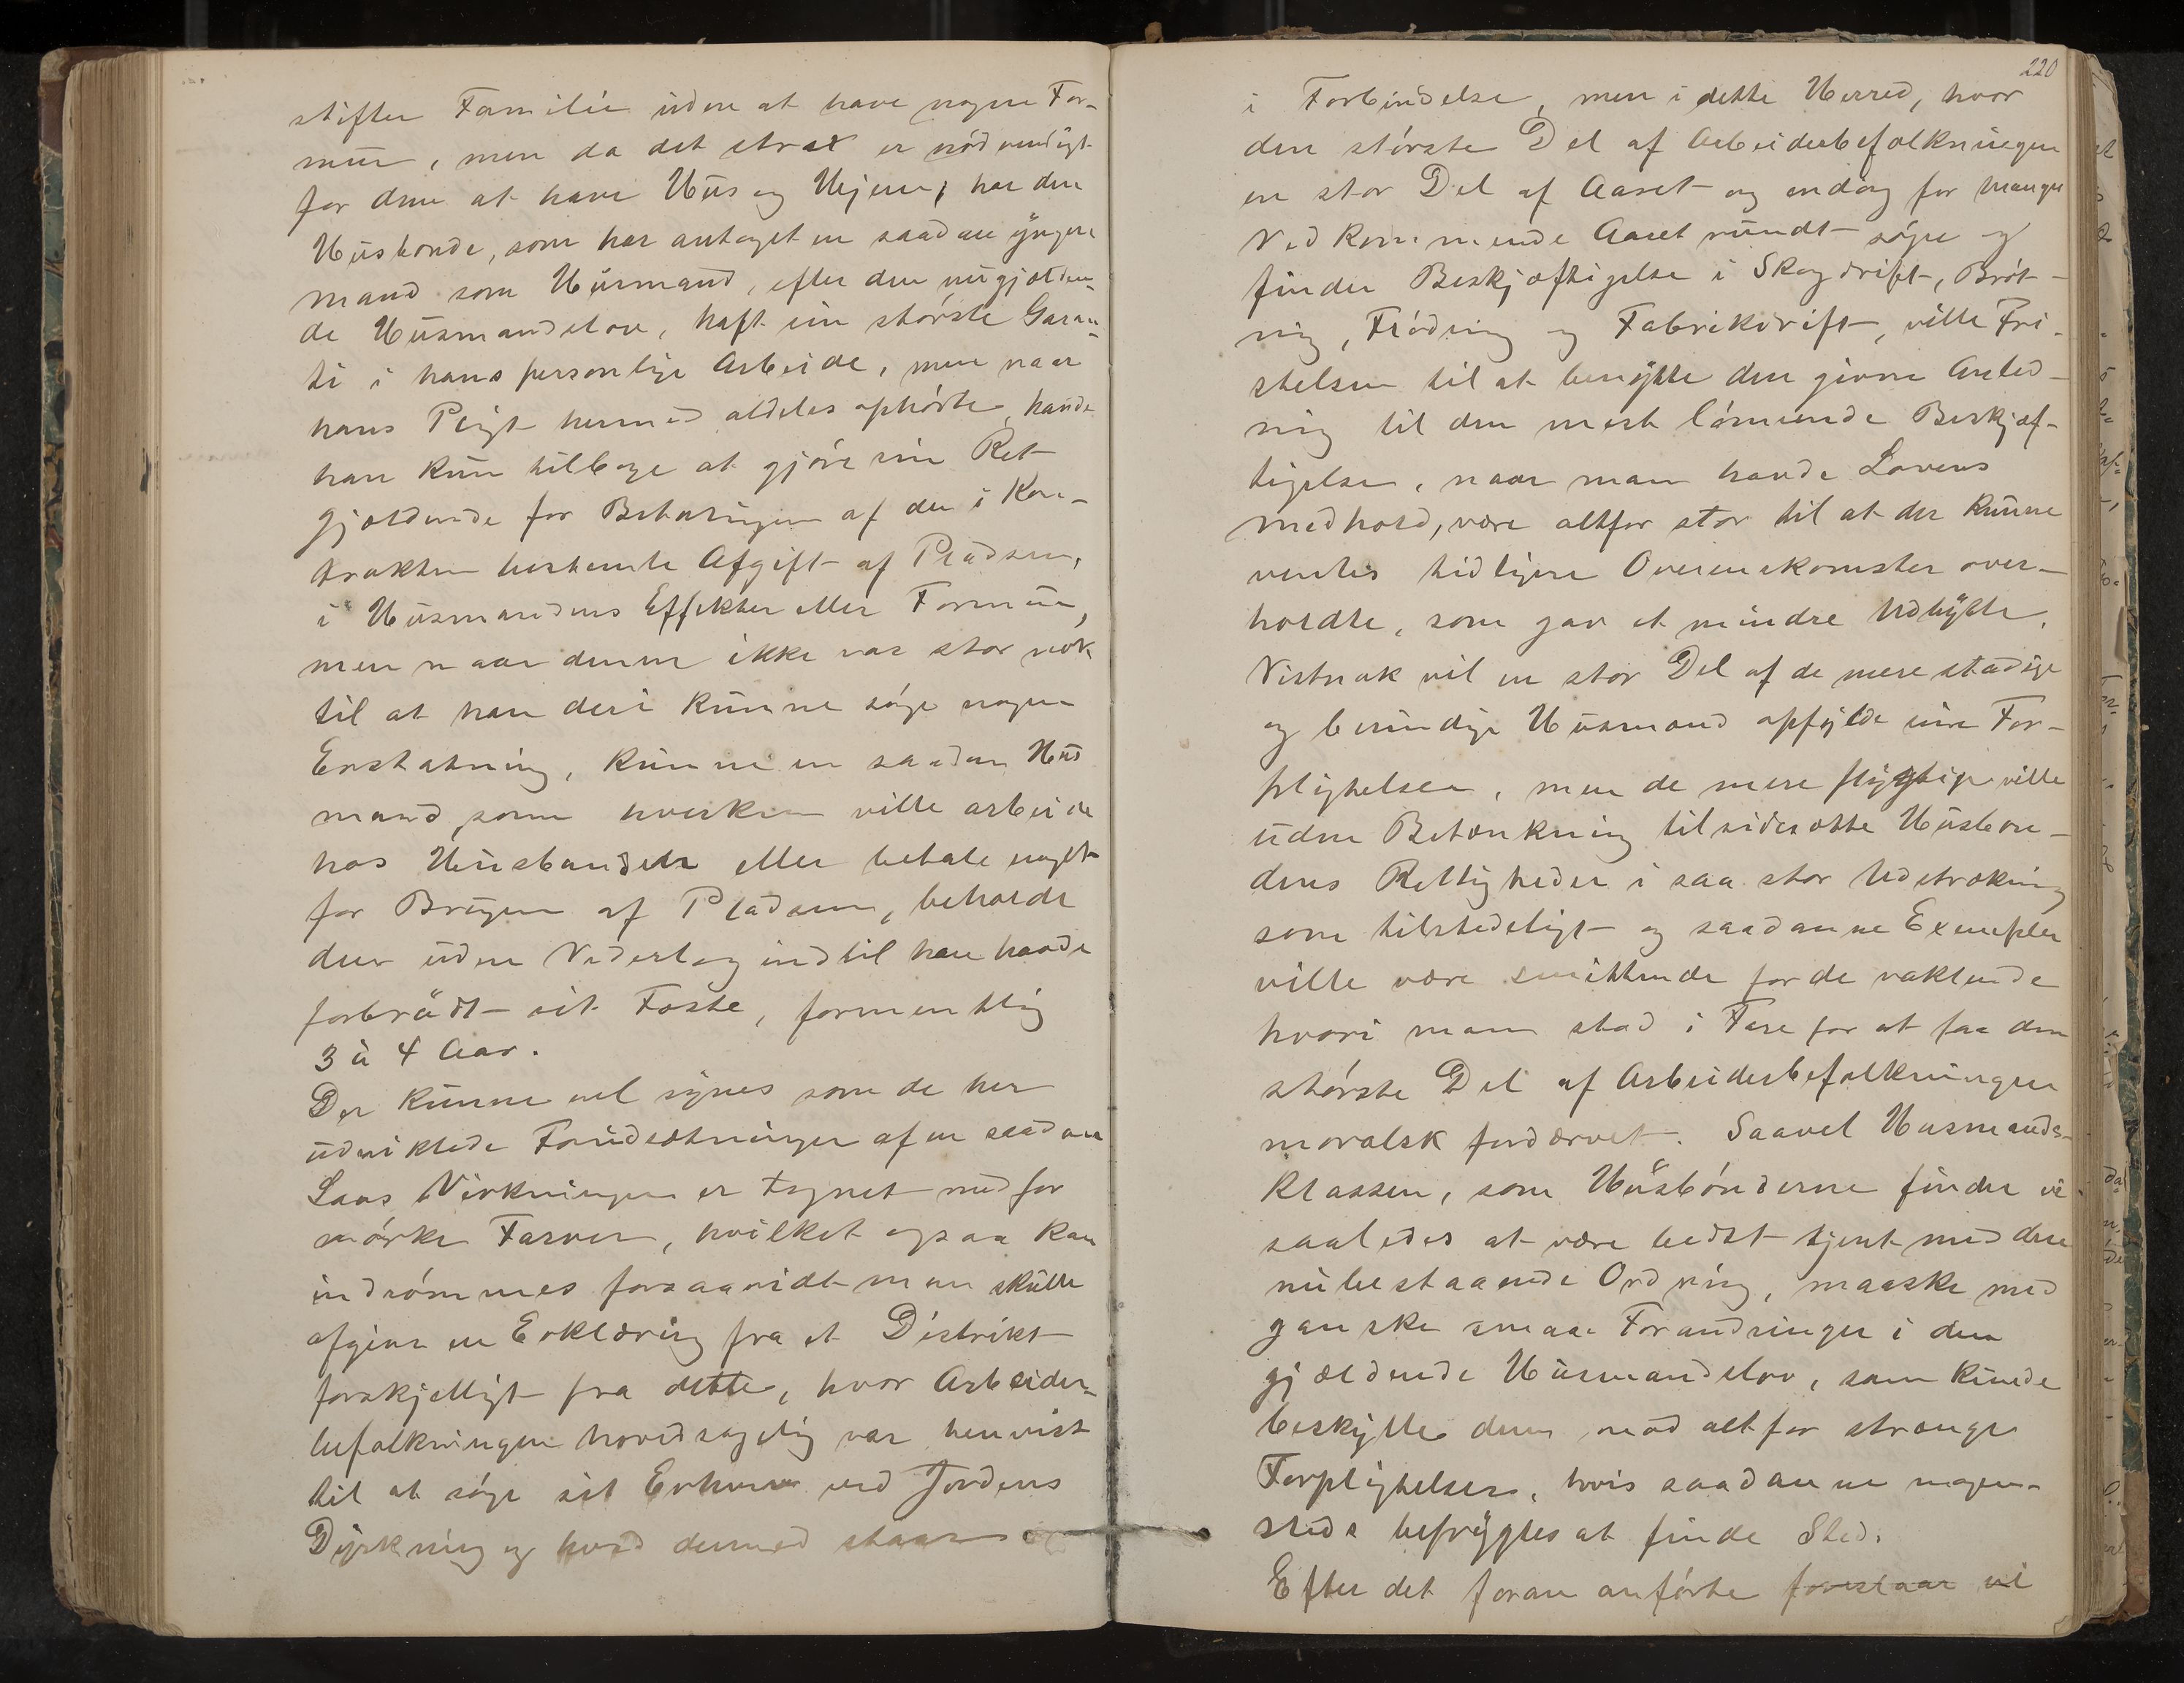 stifter Familie uden at have nogen For-
mue, men da det strax er nödvendigt
for dem at have Hus og Hjem, har den
Husbonde, som har antaget en saadan yngre
mand som Husmand, efter den nugjælden-
de Husmandslov, haft sin störste Garan-
ti i hans personlige Arbeide, men naar
hans Pligt hermed aldeles ophörte, havde
han kun tilbage at gjöre sin Ret
gjældende for Betalingen af den i Kon-
trakten bestemte Afgift af Pladsen,
i Husmandens Effekter eller Formue,
men naar denne ikke var stor nok
til at han deri kunne söge nogen
Erstatning, kunne en saadan Hus
mand, som hverken ville arbeide
hos Husbonden eller betale noget
for Brugen af Pladsen, beholde
den uden Vederlag indtil han havde
forbrudt sit Fæste, formentlig
3 à 4 Aar.
Der kunne vel synes som de her
udviklede Forudsætninger af en saadan
Lovs Virkninger er tegnet med for
mörke Farver, hvilket ogsaa kan
indrömmes forsaavidt man skulle
afgive en Erklæring fra et Distrikt
forskjelligt fra dette, hvor Arbeider-
befolkningen hovedsagelig var henvist
til at söge sit Erhverv ved Jordens
Dyrkning og hvad dermed staar
220
i Forbindelse, men i dette Herred, hvor
den störste Del af Arbeiderbefolkningen
en stor Del af Aaret og endog for mange
Vedkommende Aaret rundt söger og
finder Beskjæftigelse i Skogdrift, Bröt-
ning, Flödning og Fabrikdrift, ville Fri-
stelsen til at benytte den givne Anled-
ning til den mest lönnende Beskjæf-
tigelse, naar man havde Lovens
medhold, være altfor stor til at der kunne
ventes tidligere Overenskomster over-
holdte, som gav et mindre Udbytte.
Vistnok vil en stor Del af de mere stadige
og besindige Husmænd opfylde sine For-
pligtelser, men de mere flygtige ville
uden Betænkning tilsidesætte Husbon-
dens Rettigheder i saa stor Udstrækning
som tilstedeligt og saadanne Exempler
ville være smittende for de vaklende
hvori man stod i Fare for at faa den
störste Del af Arbeiderbefolkningen
moralsk fordærvet. Saavel Husmands-
klassen, som Husbönderne finder vi
saaledes at være bedst tjent med den
nubestaaende Ordning, maaske med
ganske smaa Forandringer i den
gjældende Husmandslov, som kunde
beskytte dem mod altfor strænge
Forpligtelser, hvis saadanne nogen-
steds befrygtes at finde Sted.
Efter det foran anförte foreslaar vi